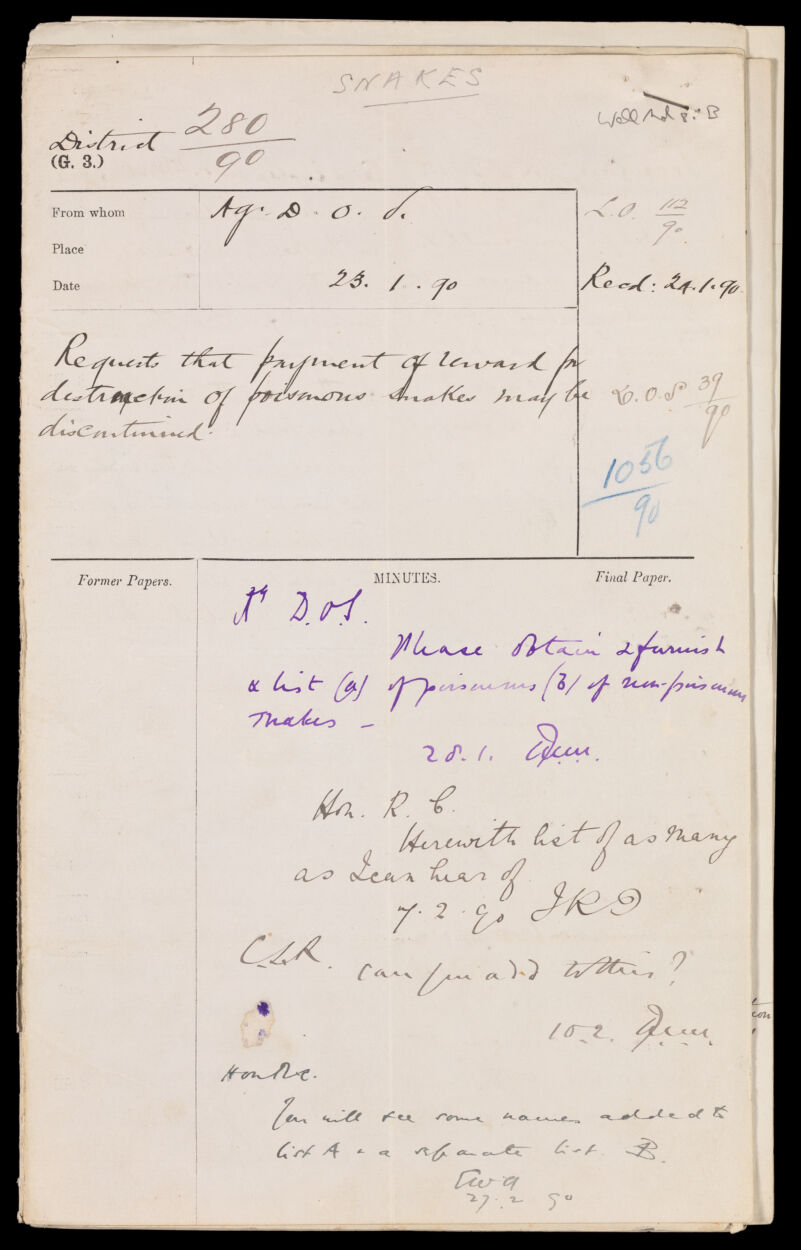 SNAKES
District 280/90
(G. 3.)
From whom
Ag. D. O. S.
L.O. 112/90
Place
Date
23. 1. 90
Recd: 24.1.90
Requests that payment of reward for
destruction of poisonous snakes may be
discontinued.
D.O.S 39/90
1056/90
Former Papers.
MINUTES.
Final Paper.
Ag D.O.S.
Please obtain & furnish
a list (a) of poisonous (b) of non-poisonous
snakes –
28.1.
Hon. R. C.
Herewith list of as many
as I can hear of
7. 2. 90 JKD
C.L.R.
can you add to this?
10.2.
Hon R.C.
You will see some names added to
list A & a separate list B.
27. 2 90